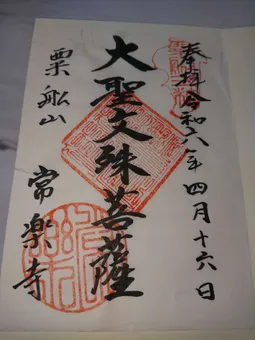 奉拝 令和六年四月十六日
大聖文殊菩薩
粟船山
常楽寺